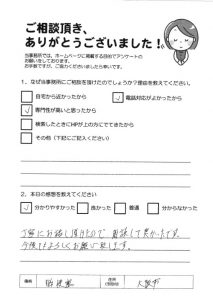 ご相談頂き、
ありがとうございました!
当事務所では、ホームページに掲載する目的でアンケートの
お願いをしております。
お手数ですが、ご協力くださいましたら幸いです。
1. なぜ当事務所にご相談を頂けたのでしょうか?理由を教えてください。
自宅から近かったから
電話対応がよかったから
専門性が高いと思ったから
検索したときにHPが上の方にでてきたから
その他(下記にご記入ください)
2. 本日の感想を教えてください
分かりやすかった
良かった
普通
分からなかった
丁寧にお話し頂けたので 相談して良かったです。
今後ともよろしくお願い致します。
職種
住所
大阪市